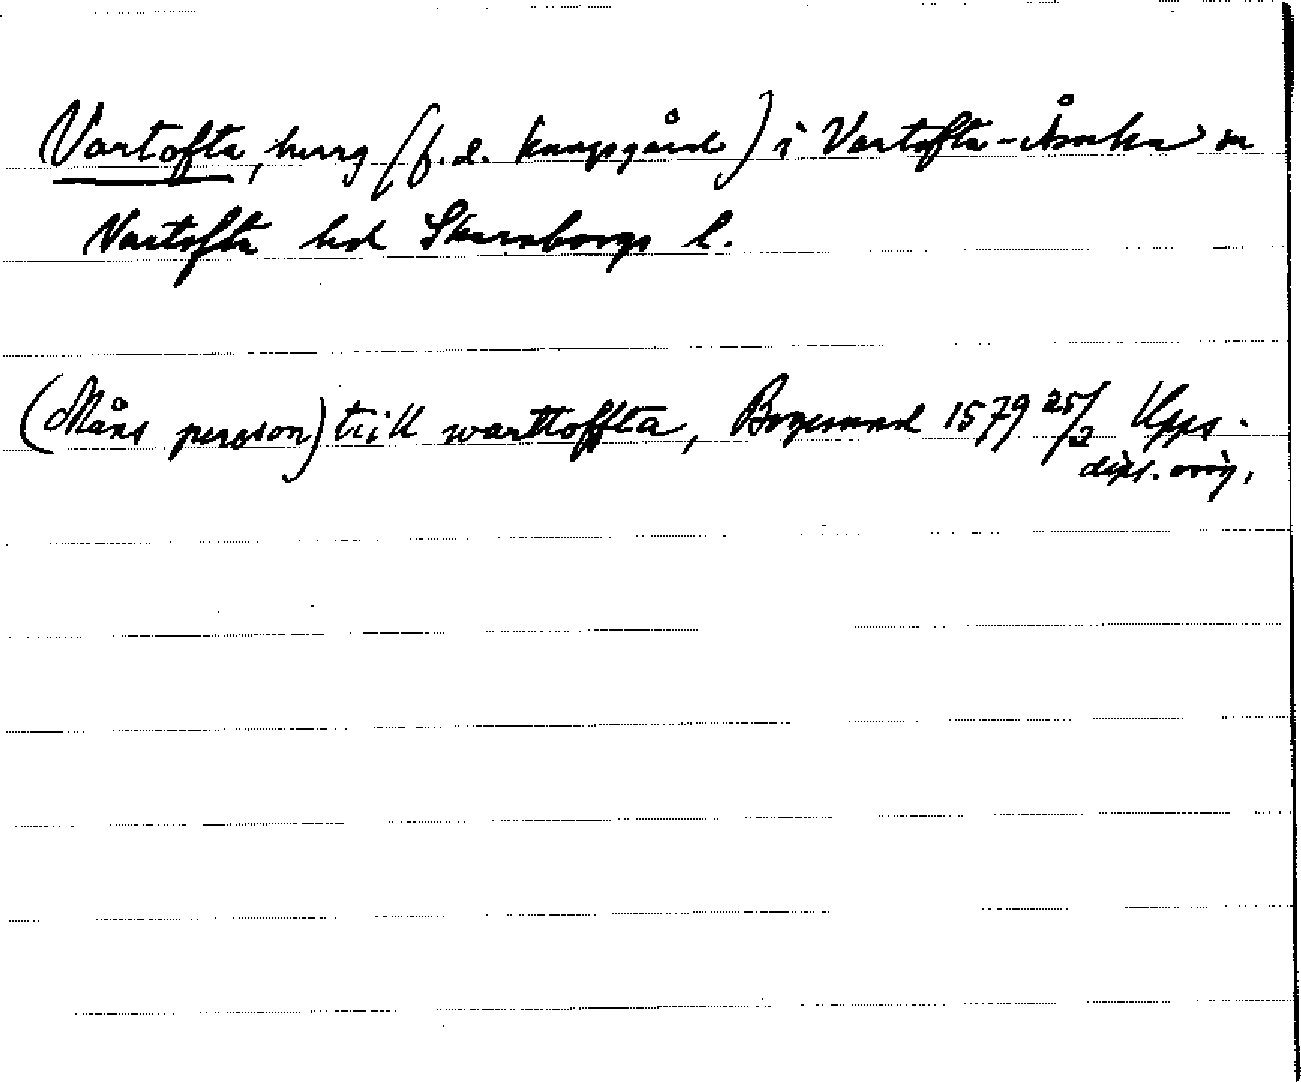 Vartofta, herrg (f. d. kungsgård) i Vartofta-Åsaka sn
Vartofta hd Skaraborgs l.
(Måns person) tiill warttoffta, Bogesund 1579 25/2 Upps.
dipl. orig.